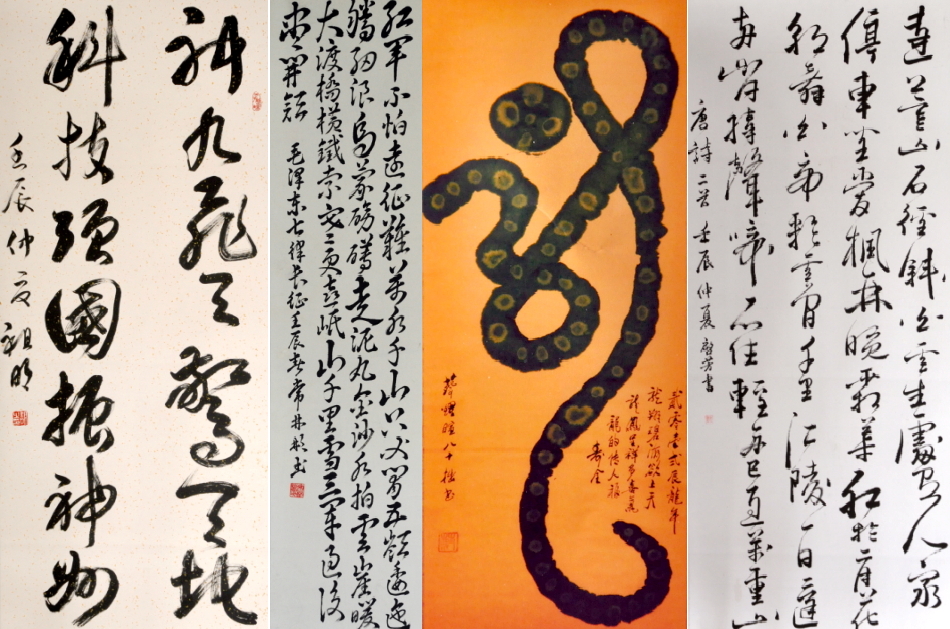 神九飛天驚天地
科技强國振神州
壬辰仲夏祖明
红軍不怕遠征難萬水千山只等閒五嶺逶迤
騰細浪烏蒙磅礴走泥丸金沙水拍雲崖暖
大渡橋横鐵索寒更喜岷山千里雪三軍過後
盡開顔 毛澤東七律長征壬辰春常林書
龍
辰龍年
龍翔碧
龍鳳呈祥
龍的傳人福
壽全
八十
遠上寒山石徑斜白雲生處有人家
停車坐愛楓林晚霜葉红於二月花
朝辭白帝彩雲間千里江陵一日還
兩岸猿聲啼不住輕舟已過萬重山
唐詩二首 壬辰仲夏 書